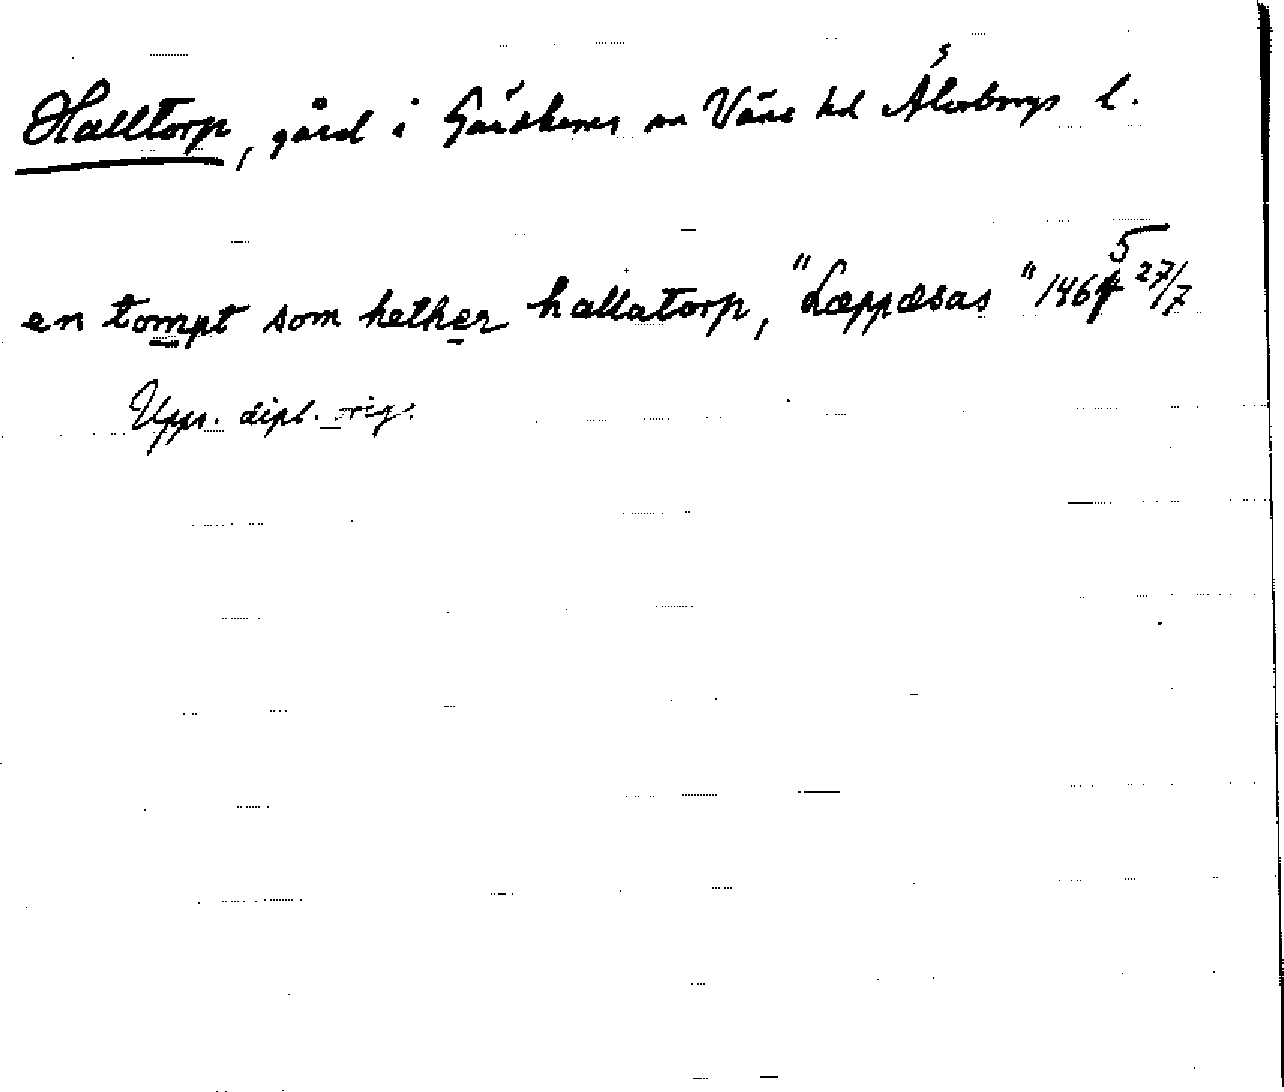 Halltorp, gård i Gärdhems sn Väne hd Älvsborgs l.
en tompt som hether hallatorp, "Læppæsas" 1465 27/7
Upps. dipl. orig.